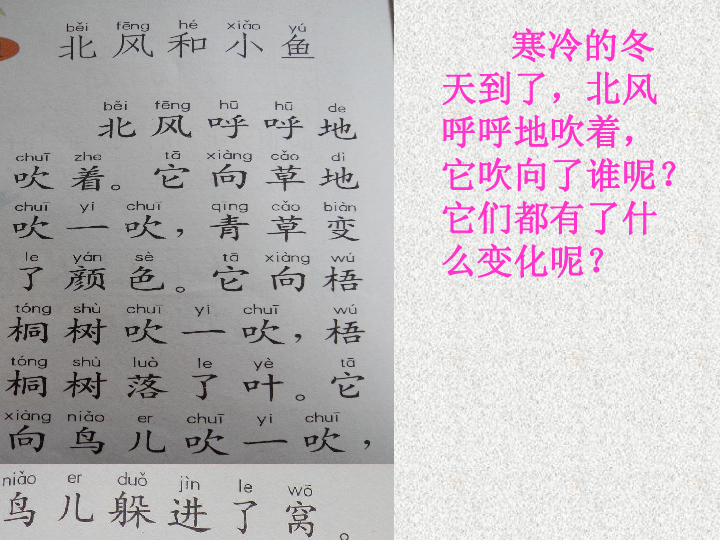 běi fēng hé xiǎo yú
北风和小鱼
běi fēng hū hū de
北风呼呼地
chuī zhe tā xiàng cǎo dì
吹着。它向草地
chuī yi chuī qīng cǎo biàn
吹一吹，青草变
le yán sè tā xiàng wú
了颜色。它向梧
tóng shù chuī yi chuī wú
桐树吹一吹，梧
tóng shù luò le yè tā
桐树落了叶。它
xiàng niǎo er chuī yi chuī
向鸟儿吹一吹，
niǎo er duǒ jìn le wō
鸟儿躲进了窝。
寒冷的冬
天到了，北风
呼呼地吹着，
它吹向了谁呢？
它们都有了什
么变化呢？